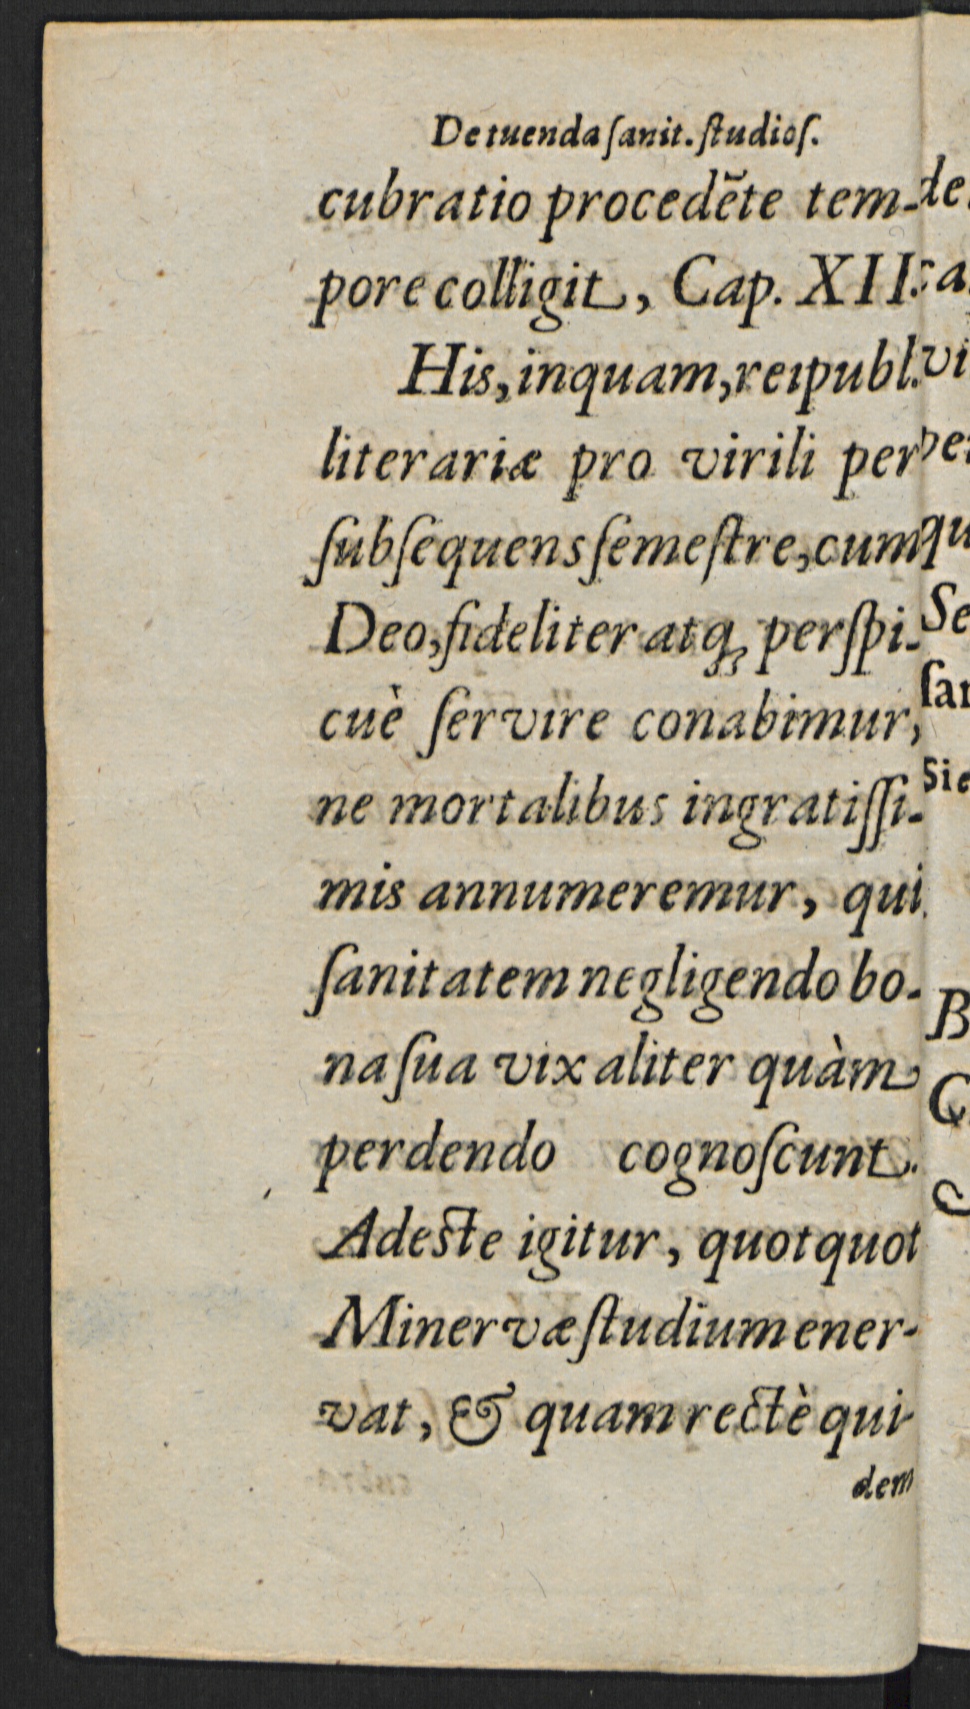 De tuenda ſanit. ſtudioſ.
cubratio procedẽte tem-
pore colligit, Cap. XII.
His, inquam, reipubl.
literariæ pro virili per
ſubſequens ſemeſtre, cum
Deo, fideliter atq; perſpi-
cuè ſervire conabimur,
ne mortalibus ingratiſſi-
mis annumeremur, qui
ſanitatem negligendo bo-
na ſua vix aliter quàm
perdendo cognoſcunt.
Adeſte igitur, quotquot
Minervæ ſtudium ener-
vat, & quam rectè qui-
dem